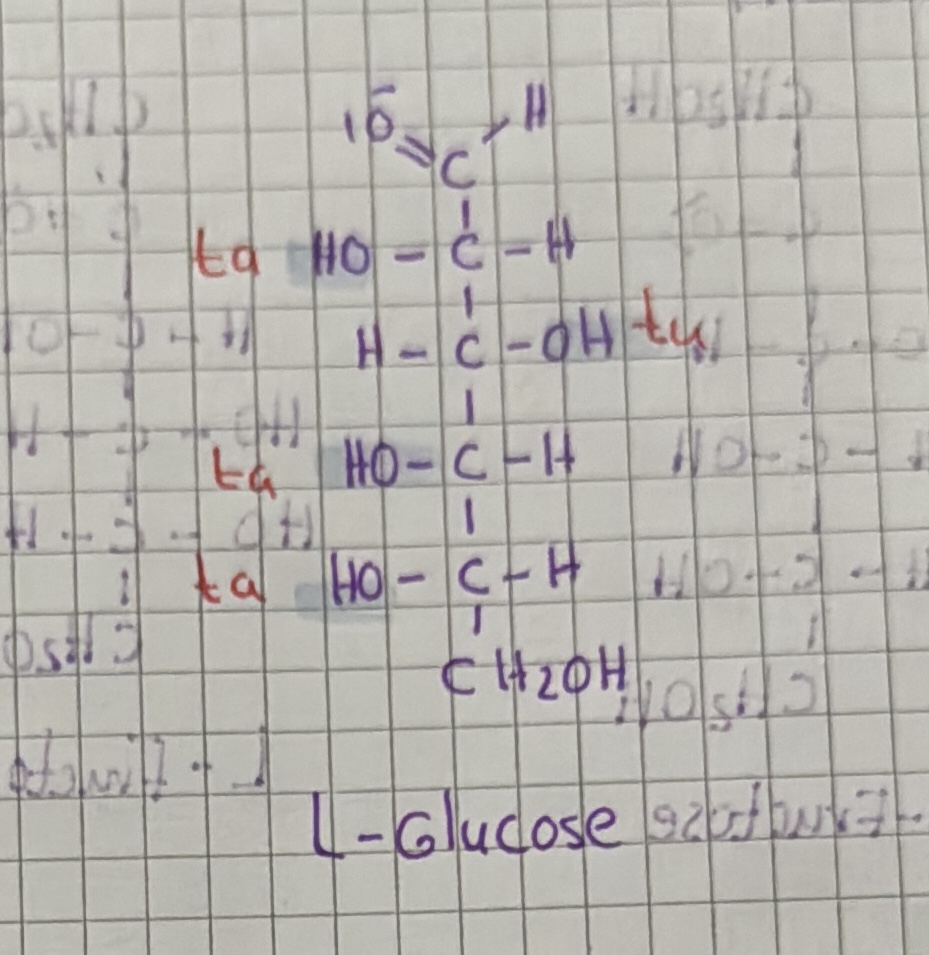 |O̅ H
C
ta HO - C - H
H - C - OH tu
ta HO - C - H
ta HO - C - H
CH2OH
L-Glucose